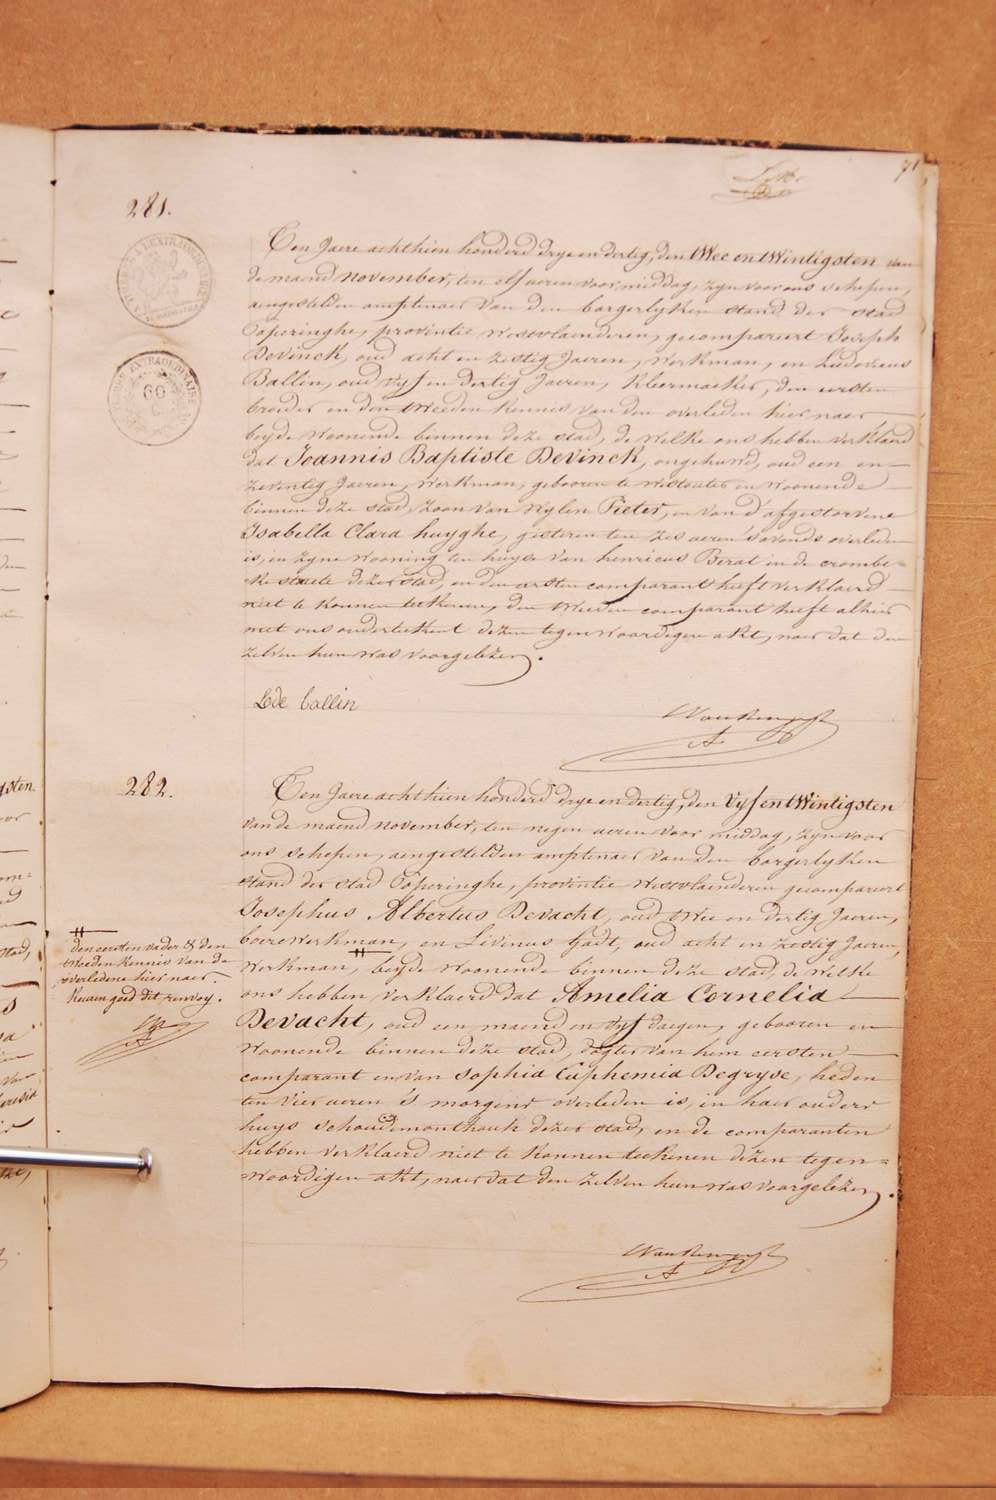 71
281.
Ten Jaere achthien honderd drye en dertig, den twee en twintigsten van
de maend november, ten elf ueren voor middag, zyn voor ons schepen,
aengestelden amptenaer van den borgerlyken stand der stad
Poperinghe, provintie Westvlaenderen, gecompareert Joseph
Devinck, oud acht en zestig Jaeren, werkman, en Ludovicus
Ballin, oud vyf en dertig Jaeren, kleermaeker, den eersten
broeder en den tweeden kennis van den overleden hier naer
beyde woonende binnen deze stad, de welke ons hebben verklaerd
dat Joannis Baptiste Devinck, ongehuwd, oud een en
zeventig Jaeren, werkman, gebooren te Westouter en woonende
binnen deze stad, zoon van wylen Pieter, en van d'afgestorvene
Isabella Clara huyghe, gisteren ten zes ueren s'avonds overleden
is, in zyne wooning ten huyse van henricus Berat in de crombe-
=ke straete dezer stad, en den eersten comparant heeft verklaerd
niet te konnen teekenen, den tweeden comparant heeft alhier
met ons onderteekent dezen tegenwoordigen akt, naer dat den
zelven hun was voorgelezen.
Lde ballin
282.
Ten Jaere achthien honderd drye en dertig, den vyf en twintigsten
van de maend november, ten negen ueren voor middag, zyn voor
ons schepen, aengestelden amptenaer van den borgerlyken
stand der stad Poperinghe, provintie Westvlaenderen gecompareert
Josephus Albertus Devacht, oud twee en dertig Jaeren,
boerewerkman, en Livinus Gadt, oud acht en zestig Jaeren,
werkman, beyde woonende binnen deze stad, de welke
ons hebben verklaerd dat Amelia Cornelia
Devacht, oud een maend en vyf daegen, gebooren en
woonende binnen deze stad, dogter van hem eersten
comparant en van Sophia Euphemia Degryse, heden
ten vier ueren s' morgens overleden is, in haer ouders
huys schoudemonthouk dezer stad, en de comparanten
hebben verklaerd niet te konnen teekenen dezen tegen-
=woordigen akt, naer dat den zelven hun was voorgelezen.
den eersten vader & den
tweeden kennis van de
overledene hier naer.
keuren goed dit renvoy.